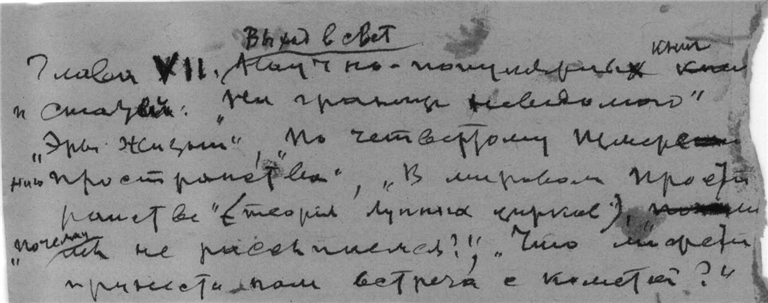 Выход в свет
Глава VII. Научно-популярных книг
и статей: „На границе неведомого"
„Эры жизни", „По четвертому измере-
нию пространства", „В мировом прост-
ранстве" (теория лунных цирков),
„Почему мы не рассыпемся?", „Что может
принести нам встреча с кометой?"